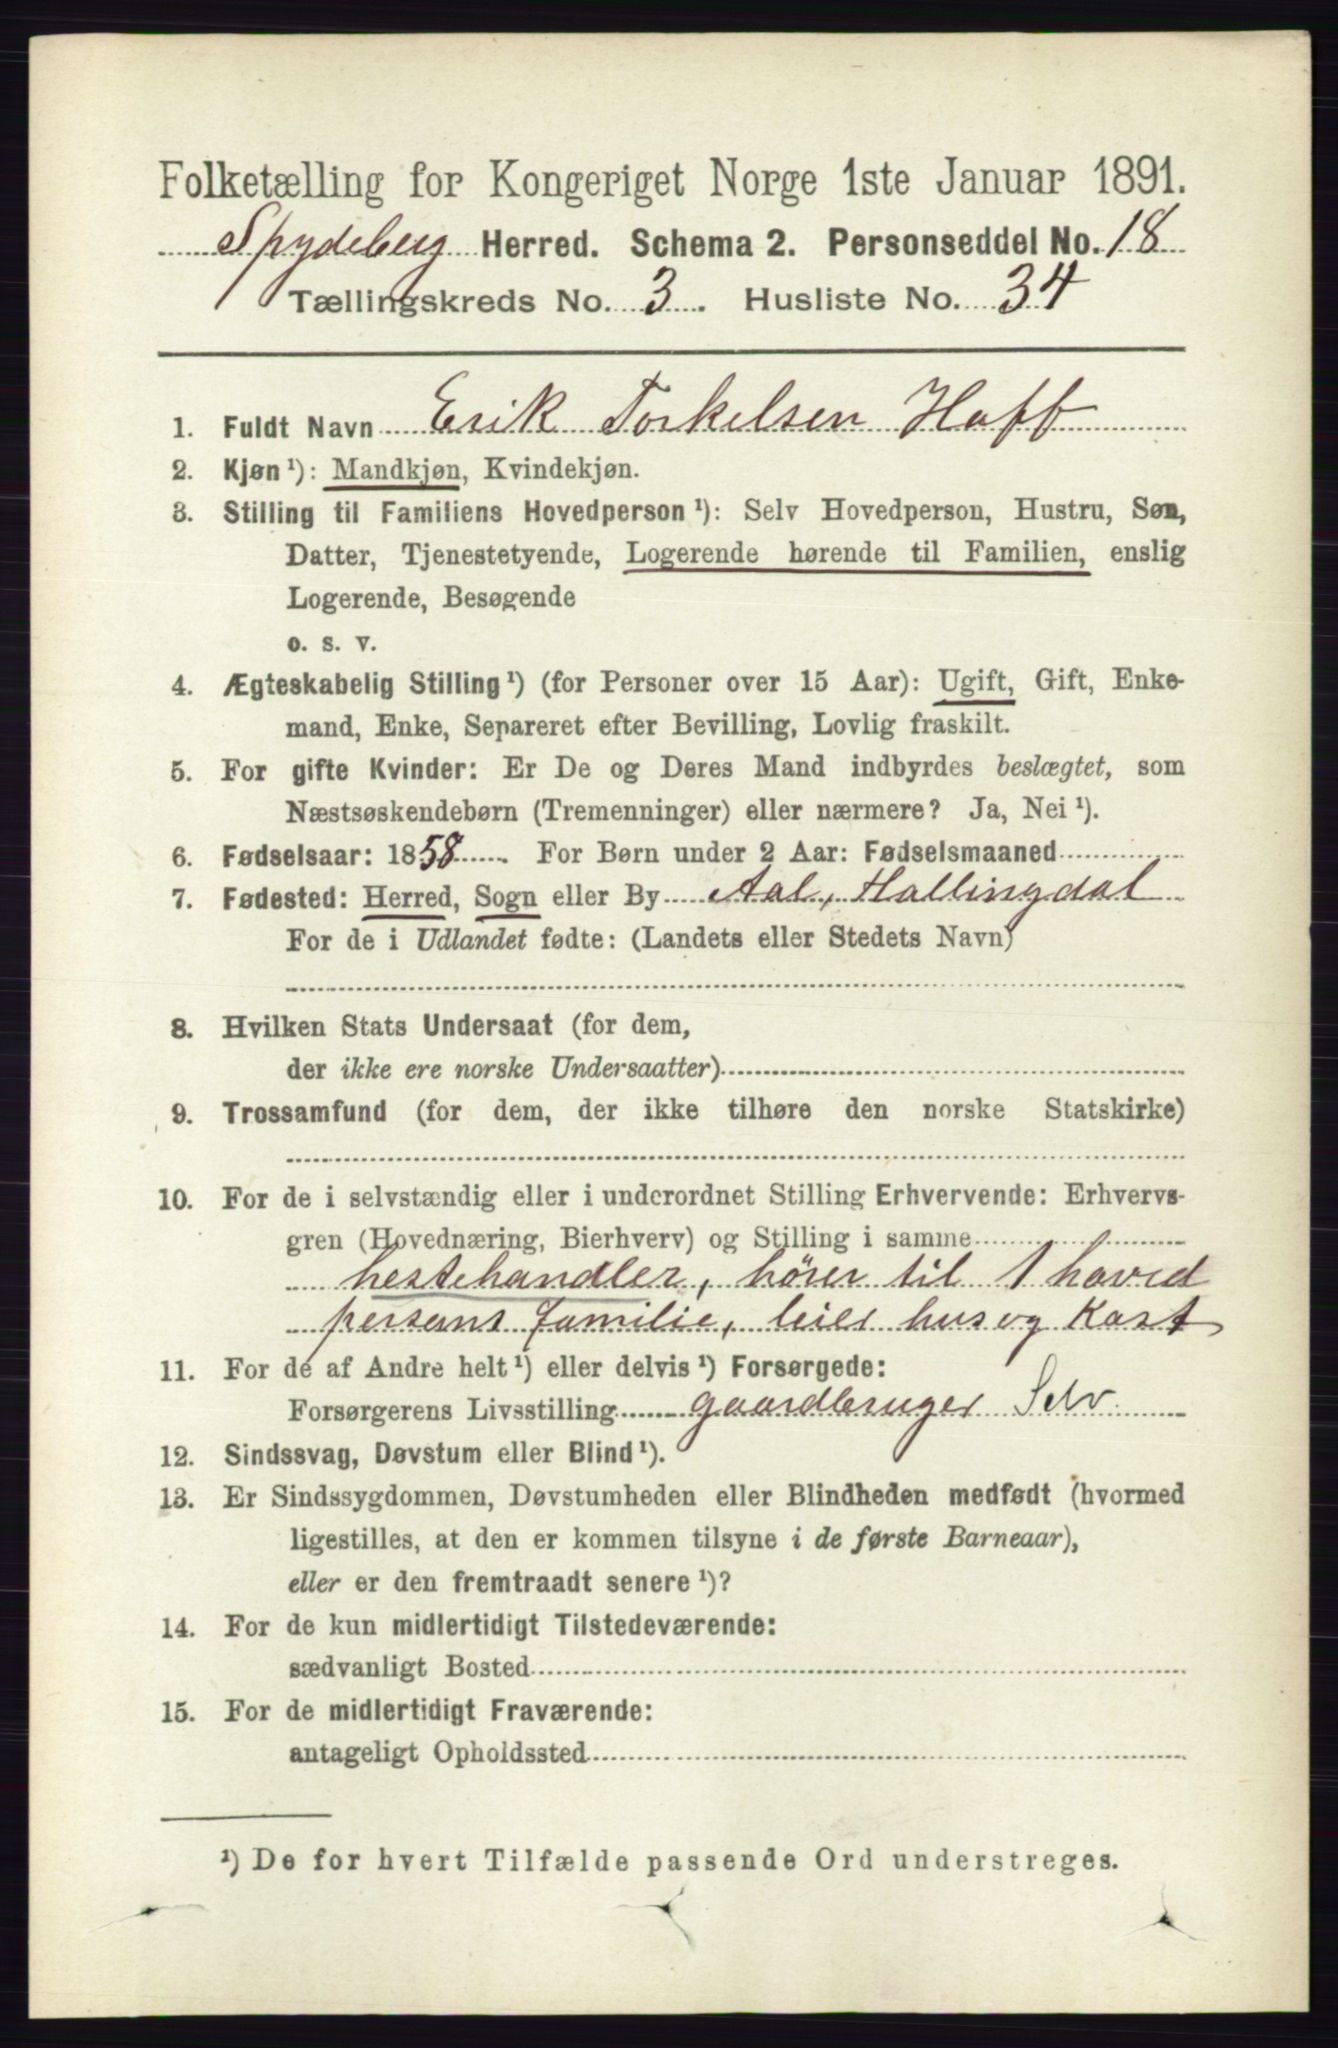 Folketælling for Kongeriget Norge 1ste Januar 1891.
Spydeberg Herred. Schema 2. Personseddel No. 18
Tællingskreds No. 3. Husliste No. 34
1. Fuldt Navn Erik Torkelsen Hoff
2. Kjøn ¹): Mandkjøn, Kvindekjøn.
3. Stilling til Familiens Hovedperson ¹): Selv Hovedperson, Hustru, Søn,
Datter, Tjenestetyende, Logerende hørende til Familien, enslig
Logerende, Besøgende
o. s. v.
4. Ægteskabelig Stilling ¹) (for Personer over 15 Aar): Ugift, Gift, Enke-
mand, Enke, Separeret efter Bevilling, Lovlig fraskilt.
5. For gifte Kvinder: Er De og Deres Mand indbyrdes beslægtet, som
Næstsøskendebørn (Tremenninger) eller nærmere? Ja, Nei ¹).
6. Fødselsaar: 1858. For Børn under 2 Aar: Fødselsmaaned
7. Fødested: Herred, Sogn eller By Aal, Hallingdal
For de i Udlandet fødte: (Landets eller Stedets Navn)
8. Hvilken Stats Undersaat (for dem,
der ikke ere norske Undersaatter)
9. Trossamfund (for dem, der ikke tilhøre den norske Statskirke)
10. For de i selvstændig eller i underordnet Stilling Erhvervende: Erhvervs-
gren (Hovednæring, Bierhverv) og Stilling i samme
hestehandler, hører til 1 hoved
persons familie, leier hus og Kost
11. For de af Andre helt ¹) eller delvis ¹) Forsørgede:
Forsørgerens Livsstilling gaardbruger Selv
12. Sindssvag, Døvstum eller Blind ¹).
13. Er Sindssygdommen, Døvstumheden eller Blindheden medfødt (hvormed
ligestilles, at den er kommen tilsyne i de første Barneaar),
eller er den fremtraadt senere ¹)?
14. For de kun midlertidigt Tilstedeværende:
sædvanligt Bosted
15. For de midlertidigt Fraværende:
antageligt Opholdssted
¹) De for hvert Tilfælde passende Ord understreges.